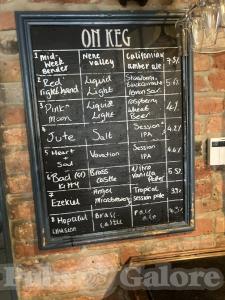 ON KEG
1 Mid-Week Bender Nene Valley Californian amber ale
2 Red right hand Liquid Light
3 Pink Moon Liquid Light raspberry wheat Beer 4%
4 Jute Salt Session IPA 4.2%
5 Heart + Soul Vocation Session IPA
6 Bad Kitty Brass Castle Vanilla Porter
7 Ezekiel Angel Microbrewery Tropical session pale
8 Hopeful Illusion Brass Castle pale ale